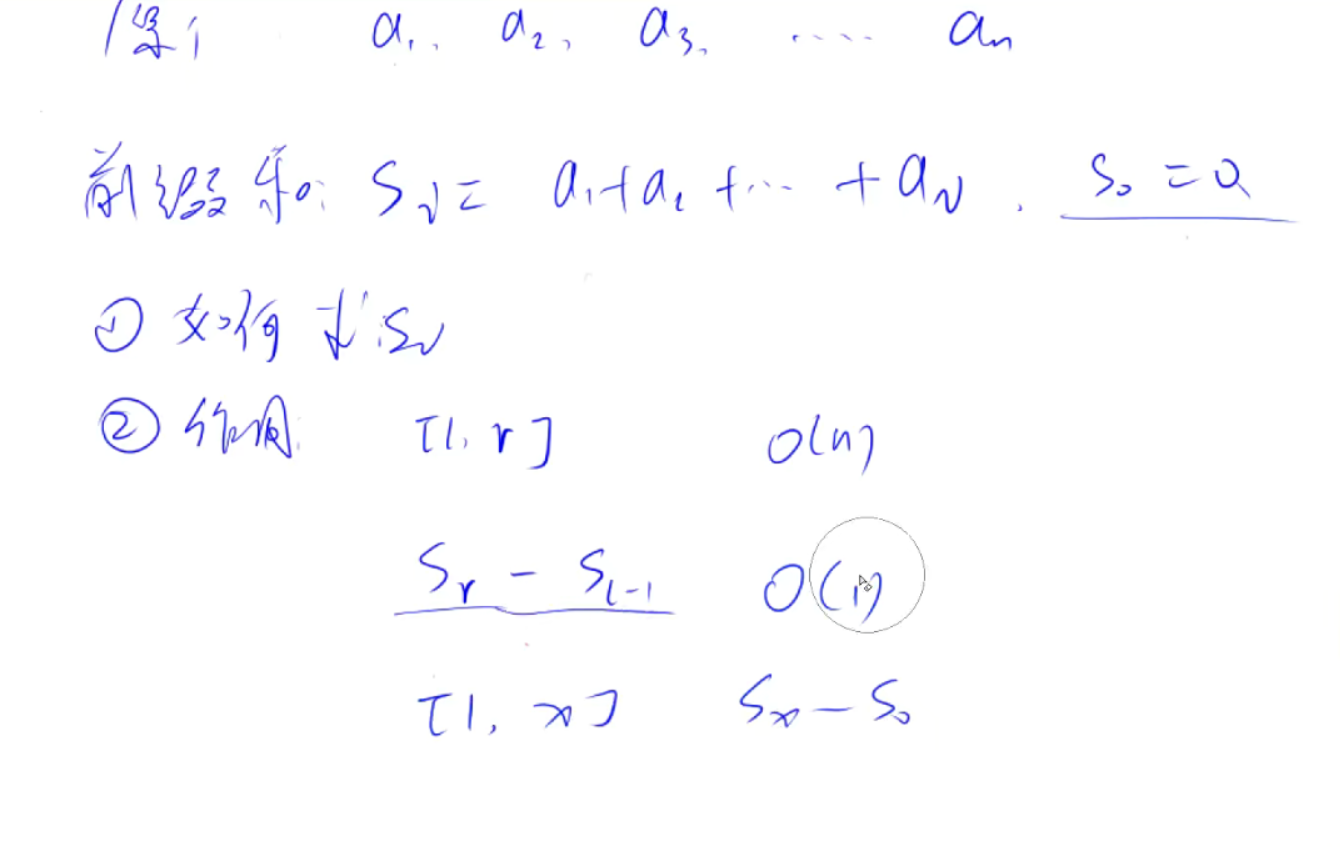 a₁, a₂, a₃, ..... aₙ
前缀和: Sᵢ = a₁+a₂+... + aᵢ. S₀ = 0
① 如何求 Sᵢ
② 作用: [l, r] O(n)
Sᵣ - Sₗ₋₁ O(1)
[1, x] Sₓ - S₀